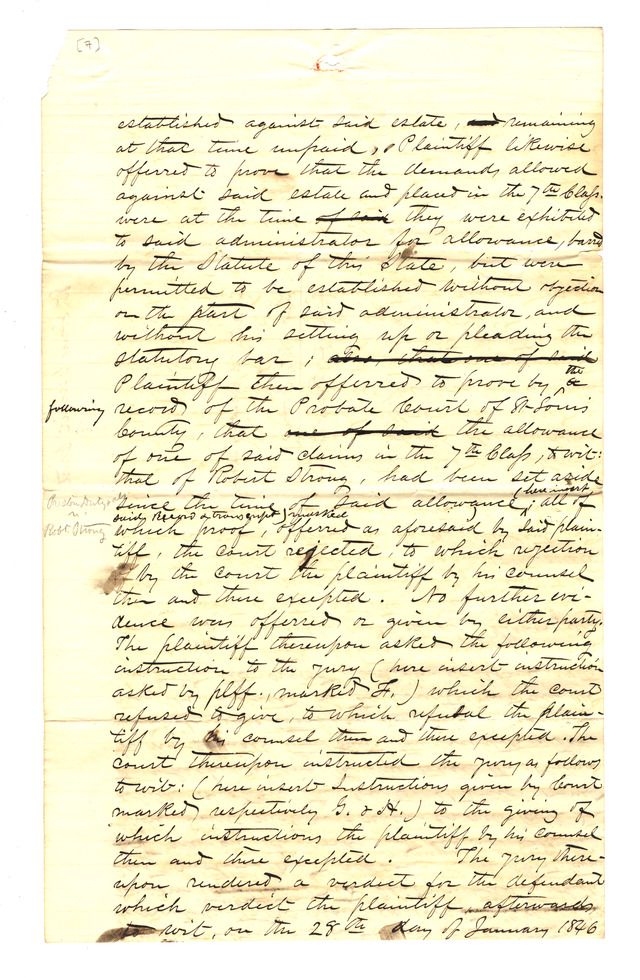 [7]
established against said estate, and remaining
at that time unpaid, Plaintiff likewise
offerred to prove that the demands allowed
against said estate and placed in the 7th Class.
were at the time of said they were exhibited
to said administrator for allowance, barred
by the Statute of this State, but were
permitted to be established without objection
on the part of said administrator, and
without his setting up or pleading the
statutory bar; also, that one of said
Plaintiff then offerred to prove by the
following records of the Probate Court of St Louis
County, that one of said the allowance
of one of said claims in the 7th Class, to wit:
that of Robert Strong, had been set aside
since the time of said allowance, (here insert all of
said Record & transcript) marked
Robt Strong
which proof, offerred as aforesaid by said plain-
tiff, the court rejected, to which rejection
of by the court the plaintiff by his counsel
then and there excepted. No further evi-
dence was offerred or given by either party.
The plaintiff thereupon asked the following
instruction to the jury (here insert instruction
asked by plff., marked F.) which the court
refused to give, to which refusal the plain-
tiff by his counsel then and there excepted. The
court thereupon instructed the jury as follows
to wit: (here insert Instructions given by Court
marked respectively G. & H.) to the giving of
which instructions the plaintiff by his counsel
then and there excepted. The jury there-
upon rendered a verdict for the defendant
which verdict the plaintiff, afterwards
to wit, on the 28th day of January 1846